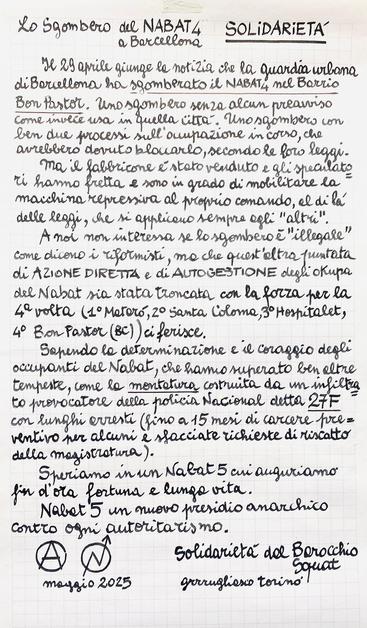 Lo Sgombero del NABAT4 SOLIDARIETÁ
a Barcellona
Il 29 aprile giunge la notizia che la guardia urbana
di Barcellona ha sgomberato il NABAT4 nel Barrio
Bon Pastor. Uno sgombero senza alcun preavviso
come invece usa in quella città. Uno sgombero con
ben due processi sull'occupazione in corso, che
avrebbero dovuto bloccarlo, secondo le loro leggi.
Ma il fabbricone è stato venduto e gli speculato=
ri hanno fretta e sono in grado di mobilitare la
macchina repressiva al proprio comando, al di là
delle leggi, che si applicano sempre agli "altri".
A noi non interessa se lo sgombero è "illegale"
come dicono i riformisti, ma che quest'altra puntata
di AZIONE DIRETTA e di AUTOGESTIONE degli okupa
del Nabat sia stata troncata con la forza per la
4ª volta (1° Mataro, 2° Santa Coloma, 3° Hospitalet,
4° Bon Pastor (BC)) ci ferisce.
Sapendo la determinazione e il coraggio degli
occupanti del Nabat, che hanno superato ben altre
tempeste, come la montatura costruita da un infiltra=
to provocatore della policia Nacional detta 27F
con lunghi arresti (fino a 15 mesi di carcere pre=
ventivo per alcuni e sfacciate richieste di riscatto
della magistratura).
Speriamo in un Nabat 5 cui auguriamo
fin d'ora fortuna e lunga vita.
Nabat 5 un nuovo presidio anarchico
contro ogni autoritarismo.
Solidarietà dal Barocchio
Squat
maggio 2025 grrrugliasco torino